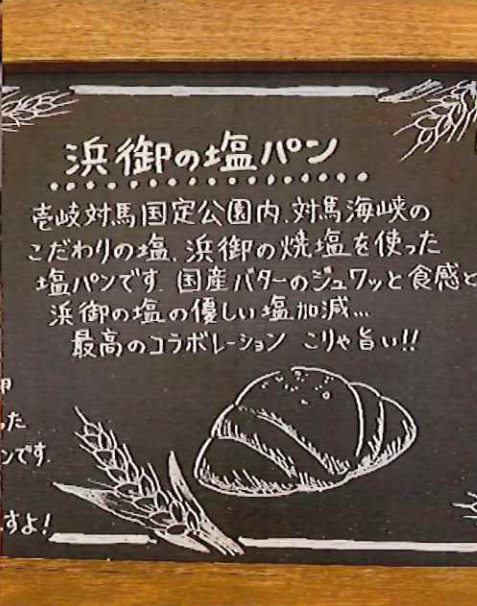 浜御の塩パン
壱岐対馬国定公園内、対馬海峡の
こだわりの塩、浜御の焼塩を使った
塩パンです. 国産バターのジュワッと食感と
浜御の塩の優しい塩加減…
最高のコラボレーション こりゃ旨い!!
った
ンです.
すよ!